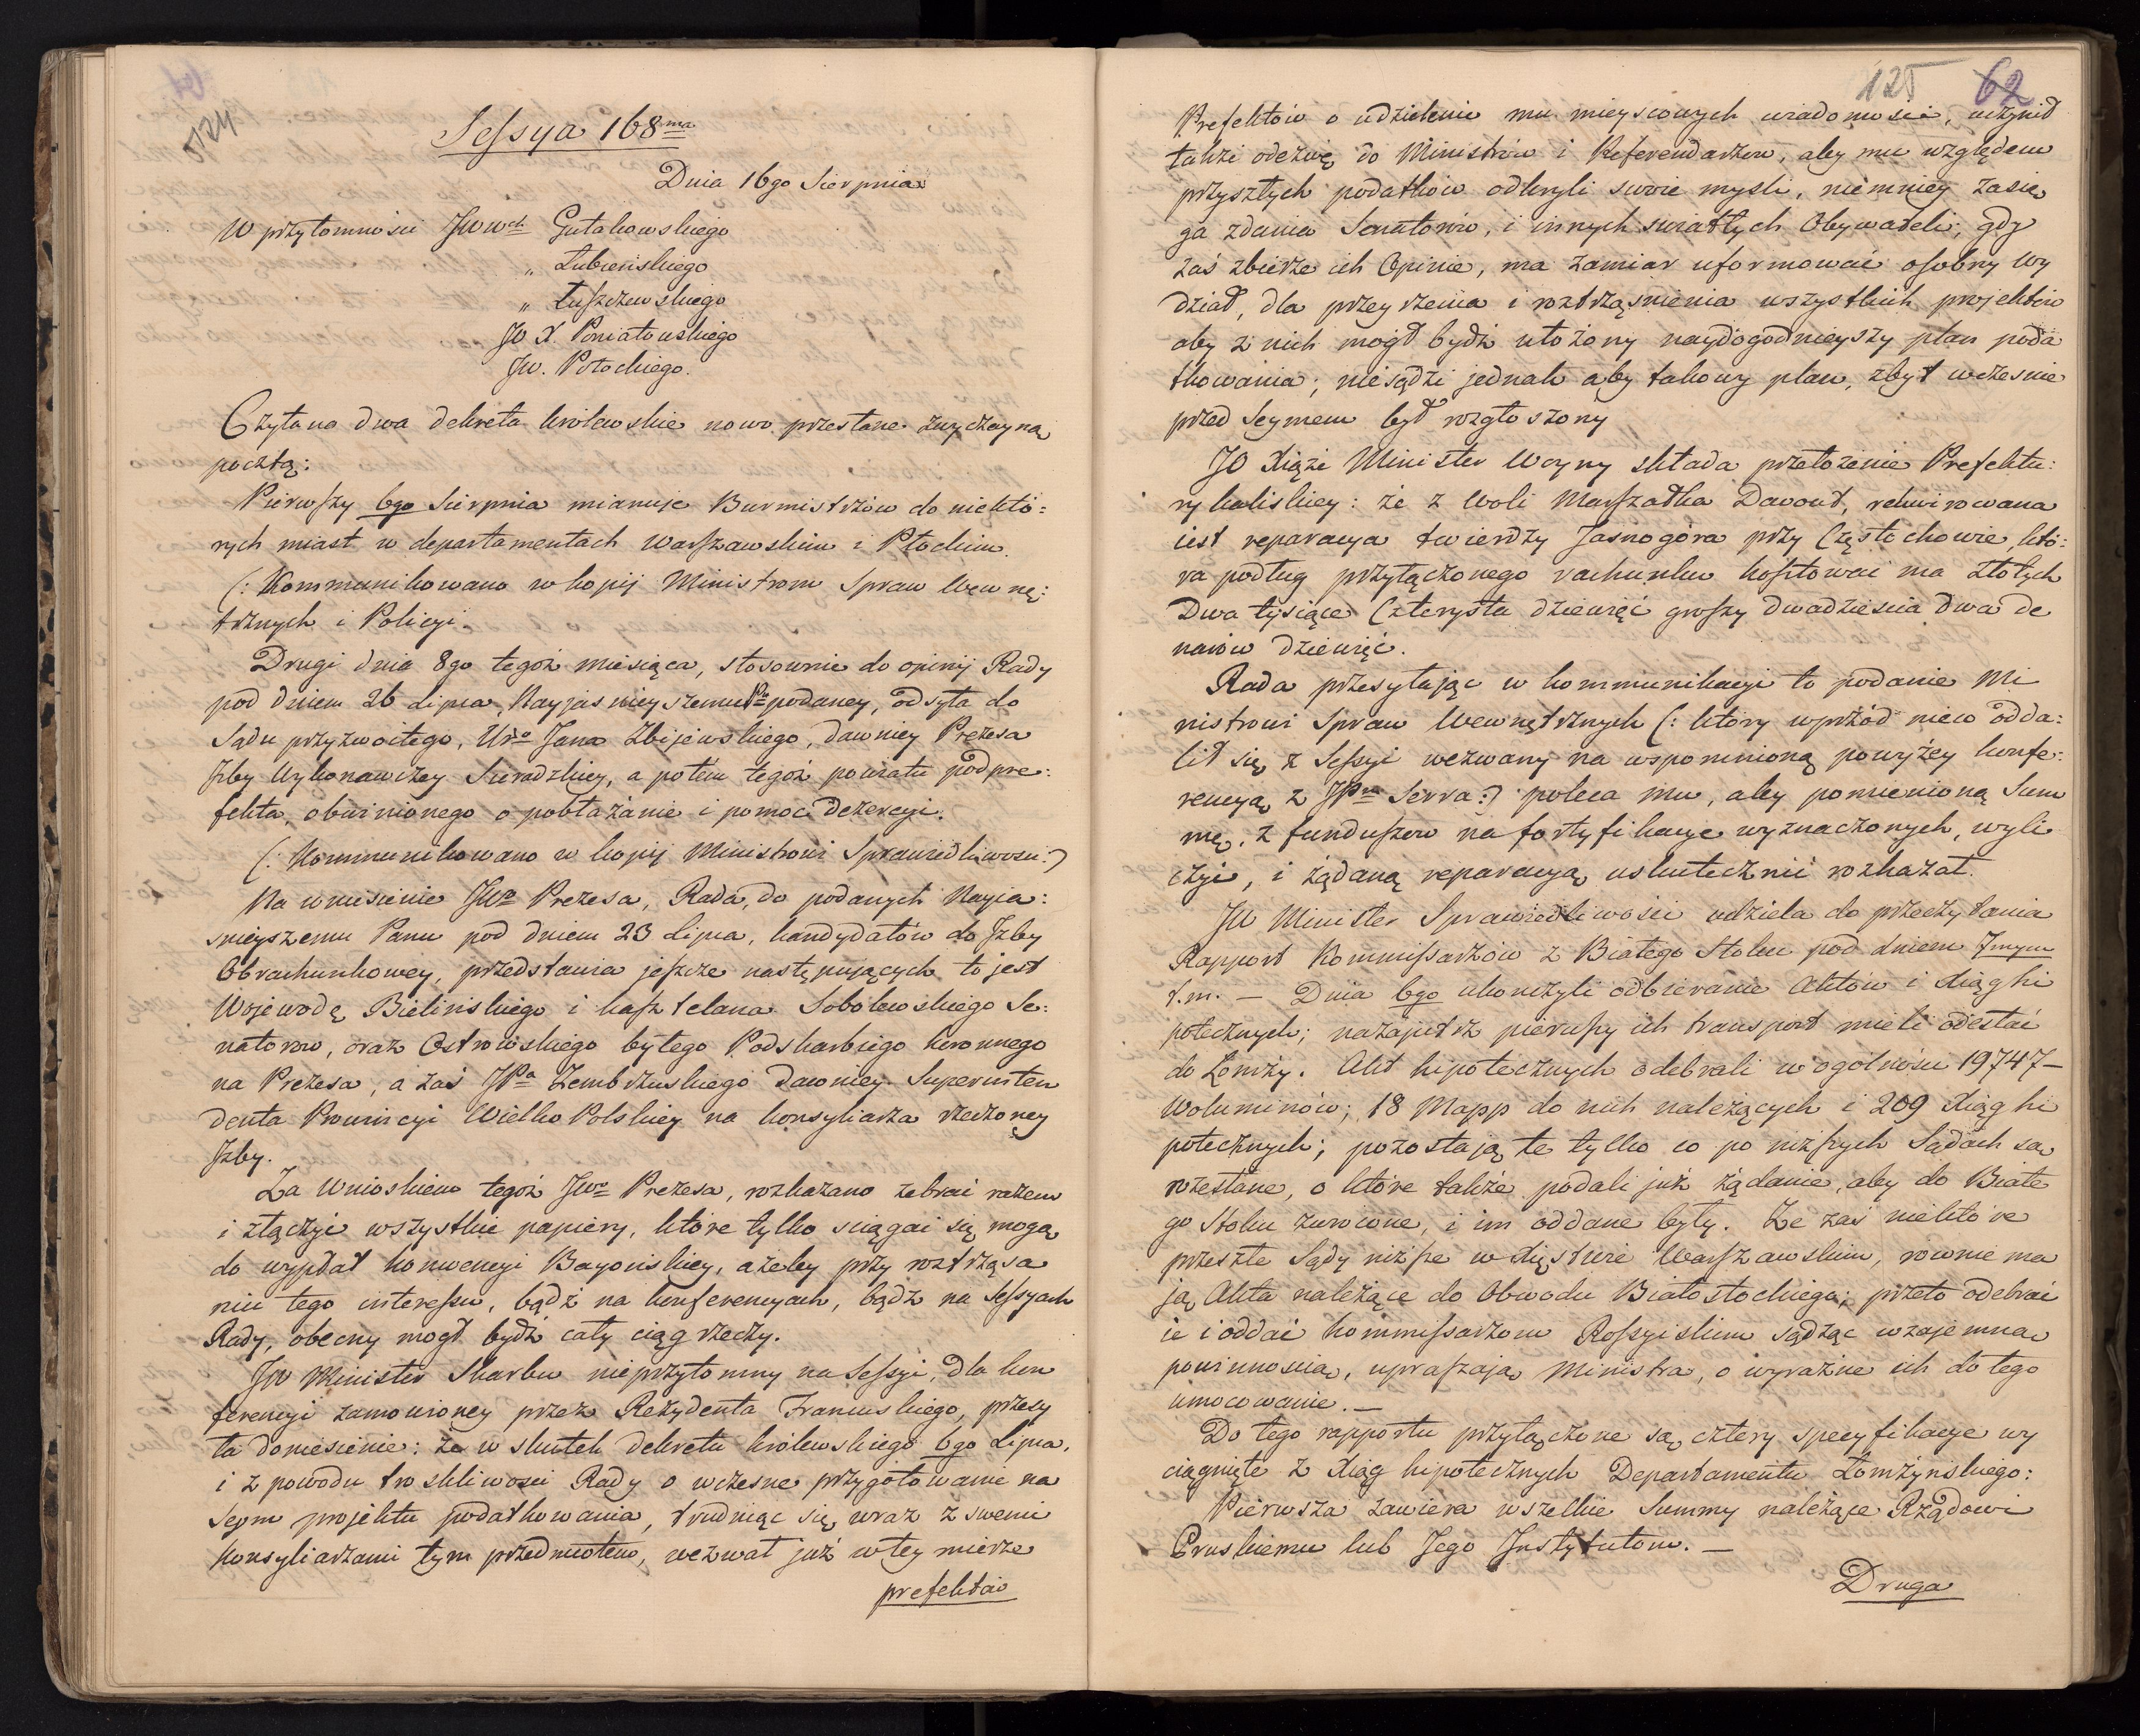 124
Sessya 168ma
Dnia 16go Sierpnia
W przytomnosci JWwch Gutakowskiego
„ Łubieńskiego
„ Łuszczewskiego
JO X. Poniatowskiego
JW. Potockiego.
Czytano dwa dekreta krolewskie nowo przesłane zwyczayną
pocztą:
Pierwszy 6go Sierpnia mianuje Burmistrzów do niektó:
rych miast w departamentach Warszawskim i Płockim.
(: Kommunikowano w kopij Ministrom Spraw Wewnę:
trznych i Policyi.
Drugi dnia 8go tegoż miesiąca, stosownie do opinij Rady
pod dniem 26 Lipca, Nayjasnieyszemu Pu podaney, odsyła do
Sądu przyzwoitego, Uro Jana Zbijewskiego, dawniey Prezesa
Izby Wykonawczey Sieradzkiey, a potém tegoż powiatu podpre:
fekta, obwinionego o pobłażanie i pomoc Dezercyi.
(: Kommunikowano w kopij Ministrowi Sprawiedliwosci:)
Na wniesienie JWo Prezesa, Rada, do podanych Nayia:
snieyszemu Panu pod dniem 23 Lipca, kandydatów do Izby
Obrachunkowey, przedstawia jeszcze następujących to jest
Wojewodę Bielinskiego i kasztelana Sobolewskiego Se:
natorow, oraz Ostrowskiego byłego Podskarbiego koronnego
na Prezesa, a zaś JPa Zembrzuskiego dawniey Superinten
denta Prowincyi WielkoPolskiey na konsyliarza rzeczoney
Izby.
Za Wnioskiem tegoż JWo Prezesa, rozkazano zebrać razem
i złączyć wszystkie papiéry, które tylko sciągać się mogą
do wypłat konwencyi Bayońskiey, ażeby przy roztrząsa
niu tego interessu, bądź na konferencyach, bądź na Sessyach
Rady, obecny mogł bydź cały ciąg rzeczy.
JW Minister Skarbu nieprzytomny na Sessyi, dla kon
ferencyi zamowioney przez Rezydenta Francuskiego, przesy
ła doniesienie: że w skutek dekretu królewskiego 6go Lipca,
i z powodu troskliwosci Rady o wczesne przygotowanie na
seym projektu podatkowania, trudniąc się wraz z swemi
konsyliarzami tym przedmiotem, wezwał już w tey mierze
prefektów
125 62
Prefektów o udzielenie mu mieyscowych wiadomości, uczynił
także odezwę do Ministrów i Referendarzow, aby mu względem
przyszłych podatków odkryli swoie mysli, niemniey zasię
ga zdania Senatorów, i innych swiatłych Obywateli; gdy
zaś zbierze ich Opinie, ma zamiar uformować osobny Wy
dział, dla przeyrzenia i roztrząsnienia wszystkich projektów
aby z nich mógł bydź ułożony naydogodnieyszy plan poda
tkowania; niesądzi jednak aby takowy plan, zbyt wczesnie
przed Seymem był rozgłoszony
JO Xiąże Minister Woyny składa przełożenie Prefektu:
ry kaliskiey: że z woli Marszałka Davout, rekwirowana
iest reparacya twierdzy Jasnogóra przy Częstochowie, któ:
ra podług przyłączonego rachunku kosztować ma złotych
Dwa tysiące Czterysta dziewięć groszy dwadziescia dwa de
narów dziewięć.
Rada przesyłając w kommunikacyi to podanie Mi
nistrowi Spraw Wewnętrznych (: który wprzód nieco odda:
lił się z Sessyi wezwany na wspomnioną powyżey konfe:
rencyą z JPem Serra:) poleca mu, aby pomienioną Sum
mę, z funduszow na fortyfikacye wyznaczonych, wyli
czyć, i żądaną reparacyą uskutecznić rozkazał.
JW Minister Sprawiedliwości udziela do przeczytania
Rapport Kommissarzów z Białego Stoku pod dniem 7mym
t.m. — Dnia 6go ukończyli odbieranie Aktów i Xiąg hi
potecznych; nazajutrz pierwszy ich transport mieli odesłać
do Łomży. Akt hipotecznych odebrali w ogólności 19747 —
Woluminów; 18 Mapp do nich należących i 209 Xiąg hi
potecznych; pozostają te tylko co po niższych Sądach są
rozesłane, o które także podali już żądanie, aby do Białe
go Stoku zwrócone, i im oddane były. Że zaś niektóre
przeszłe Sądy niższe w Xięstwie Warszawskim, równie ma
ją Akta należące do Obwodu Białostockiego; przeto odebrać
ie i oddać kommissarzom Rossyiskim sądząc wzajemną
powinnością, upraszają Ministra, o wyraźne ich do tego
umocowanie. —
Do tego rapportu przyłączone są cztery specyfikacye wy
ciągnięte z Xiąg hipotecznych Departamentu Łomżyńskiego:
Pierwsza zawiera wszelkie Summy należące Rządowi
Pruskiemu lub Jego Instytutom. —
Druga